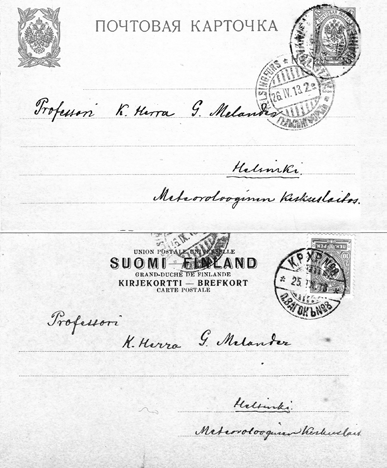 ПОЧТОВАЯ КАРТОЧКА
26.IV.13.2
Professori K. Herra G. Melander
Helsinki.
Meteorologinen Keskuslaitos.
UNION POSTALE UNIVERSELLE
SUOMI FINLAND
GRAND-DUCHÉ DE FINLANDE
KIRJEKORTTI — BREFKORT
CARTE POSTALE
К.P.X.P. №
ВАГОНЪ №
Professori
K. Herra G. Melander
Helsinki.
Meteorologinen Keskuslait